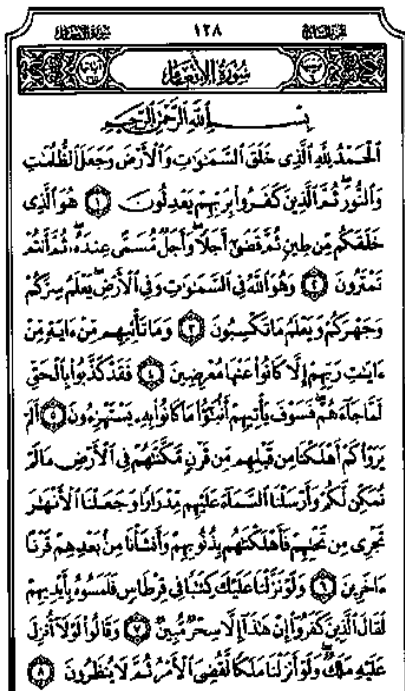 الجزء السابع ١٢٨ سورة الأنعام
سُورَةُ الْأَنْعَامِ
بِسْمِ اللَّهِ الرَّحْمَٰنِ الرَّحِيمِ
الْحَمْدُ لِلَّهِ الَّذِي خَلَقَ السَّمَاوَاتِ وَالْأَرْضَ وَجَعَلَ الظُّلُمَاتِ
وَالنُّورَ ثُمَّ الَّذِينَ كَفَرُوا بِرَبِّهِمْ يَعْدِلُونَ ١ هُوَ الَّذِي
خَلَقَكُم مِّن طِينٍ ثُمَّ قَضَىٰ أَجَلًا وَأَجَلٌ مُّسَمًّى عِندَهُ ثُمَّ أَنتُمْ
تَمْتَرُونَ ٢ وَهُوَ اللَّهُ فِي السَّمَاوَاتِ وَفِي الْأَرْضِ يَعْلَمُ سِرَّكُمْ
وَجَهْرَكُمْ وَيَعْلَمُ مَا تَكْسِبُونَ ٣ وَمَا تَأْتِيهِم مِّنْ ءَايَةٍ مِّنْ
ءَايَاتِ رَبِّهِمْ إِلَّا كَانُوا عَنْهَا مُعْرِضِينَ ٤ فَقَدْ كَذَّبُوا بِالْحَقِّ
لَمَّا جَاءَهُمْ فَسَوْفَ يَأْتِيهِمْ أَنبَٰٓؤُا مَا كَانُوا بِهِ يَسْتَهْزِءُونَ ٥ أَلَمْ
يَرَوْا كَمْ أَهْلَكْنَا مِن قَبْلِهِم مِّن قَرْنٍ مَّكَّنَّاهُمْ فِي الْأَرْضِ مَا لَمْ
نُمَكِّن لَّكُمْ وَأَرْسَلْنَا السَّمَاءَ عَلَيْهِم مِّدْرَارًا وَجَعَلْنَا الْأَنْهَارَ
تَجْرِي مِن تَحْتِهِمْ فَأَهْلَكْنَاهُم بِذُنُوبِهِمْ وَأَنشَأْنَا مِن بَعْدِهِمْ قَرْنًا
ءَاخَرِينَ ٦ وَلَوْ نَزَّلْنَا عَلَيْكَ كِتَابًا فِي قِرْطَاسٍ فَلَمَسُوهُ بِأَيْدِيهِمْ
لَقَالَ الَّذِينَ كَفَرُوا إِنْ هَٰذَا إِلَّا سِحْرٌ مُّبِينٌ ٧ وَقَالُوا لَوْلَا أُنزِلَ
عَلَيْهِ مَلَكٌ وَلَوْ أَنزَلْنَا مَلَكًا لَّقُضِيَ الْأَمْرُ ثُمَّ لَا يُنظَرُونَ ٨